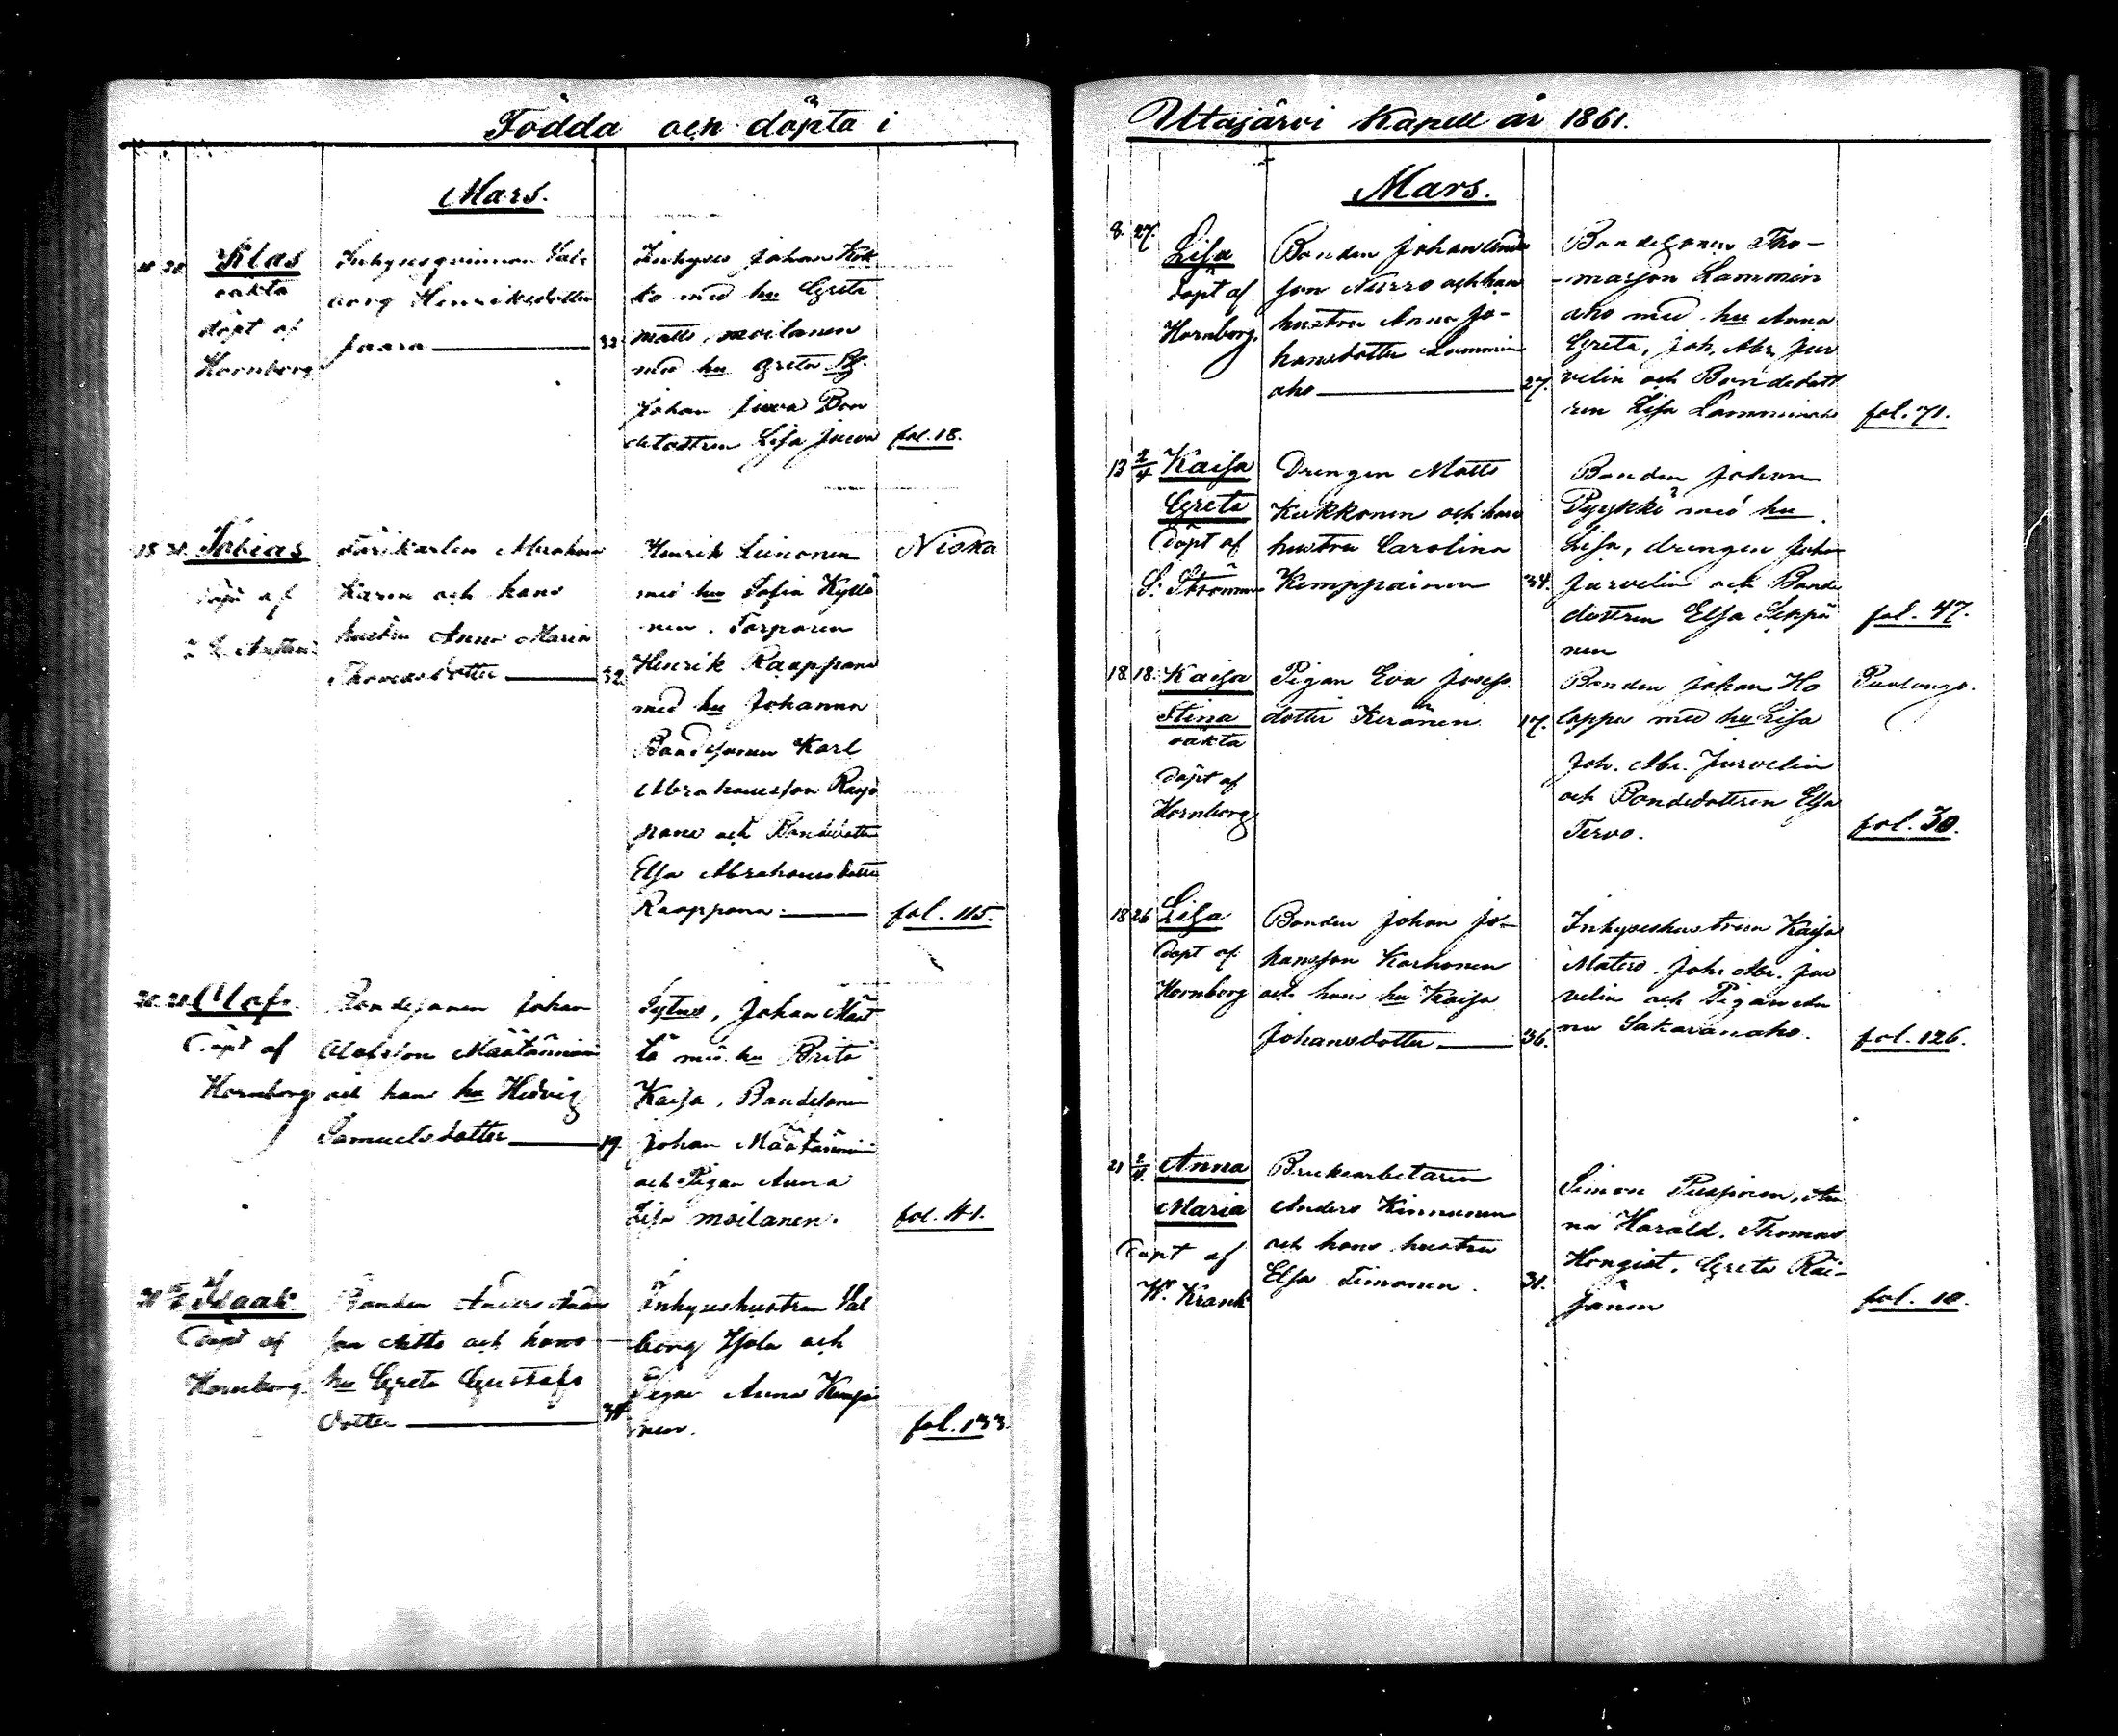 Födda och döpta i
Mars.
Klas
oäkta
döpt af
Hornborg
Inhysesqvinnan Val-
borg Henriksdotter
Juara
32
Inhyses Johan
med hu Greta
Matts Moilanen
med hu Greta
Johan Juwa Bon
dedottren Lisa Juwa
fol. 18.
Tobias
döpt af
Abraham
Karen och hans
hustru Anna Maria
Thomasdotter
32
Henrik Leinonen
med hu Sofia Kyllö
nen. Torparen
Henrik Raappana
med hu Johanna
Bondesonen Karl
Abrahamsson Raap
pana och Bondedotter
Elsa Abrahamsdotter
Raappana.
Niska
fol. 115.
20. 21.
Olof.
döpt af
Hornborg
Bondesonen Johan
Olofsson Määttäninen
och hans hu Hedvig
Samuelsdotter
19.
Sytn., Johan Määt
tä med hu Brita
Kaisa, Bondesonen
Johan Määttäninen
och Pigan Anna
Lisa Moilanen.
fol. 41.
Isaak
döpt af
Hornborg.
Bonden Anders Anders
son och hans
hu Greta Gustafs
dotter
Inhyseshustrun Val
borg och
Pigan Anna
nen.
fol. 133.
Utajärvi Kapell år 1861.
Mars.
8. 27.
Lisa
döpt af
Hornborg.
Bonden Johan Anders
son Nurro och hans
hustru Anna Jo-
hansdotter Lammin
aho
27.
Bondesonen Tho-
masson Lammin
aho med hu Anna
Greta, Joh. Abr. Jur
velin och Bondedott
ren Lisa Lamminaho
fol. 71.
13 2/4
Kaisa
Greta
döpt af
S. Ströman
Drengen Matts
Kukkonen och hans
hustru Carolina
Kemppainen
34.
Bonden Johan
Pyykkö med hu
Lisa, drengen Johan
Jurvelin och Bonde
dottren Elsa Leppä
nen
fol. 47.
18. 18.
Kaisa
Stina
oäkta
döpt af
Hornborg
Pigan Eva Josefs
dotter Keränen
17.
Bonden Johan Ho
lappa med hu Lisa
Joh. Abr. Jurvelin
och Bondedottren Elsa
Tervo.
Puolango.
fol. 30.
18 26
Lisa
döpt af
Hornborg
Bonden Johan Jo-
hansson Korhonen
och hans hu Kaisa
Johansdotter
36.
Inhyseshustrun Kaisa
Matero. Joh. Abr. Jur
velin och Pigan An
na Sakaranaho.
fol. 126.
21 2/4
Anna
Maria
Döpt af
W. Krank
Bruksarbetaren
Anders Kinnunen
och hans hustru
Elsa Timonen.
31.
Simon Puspanen, An
na Harald. Thomas
Hongist. Greta Räi-
sänen
fol. 10.